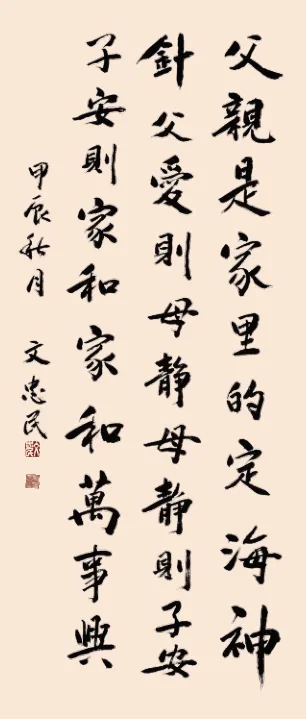 父親是家里的定海神
針父愛則母静母静則子安
子安則家和家和萬事興
甲辰秋月 文忠民